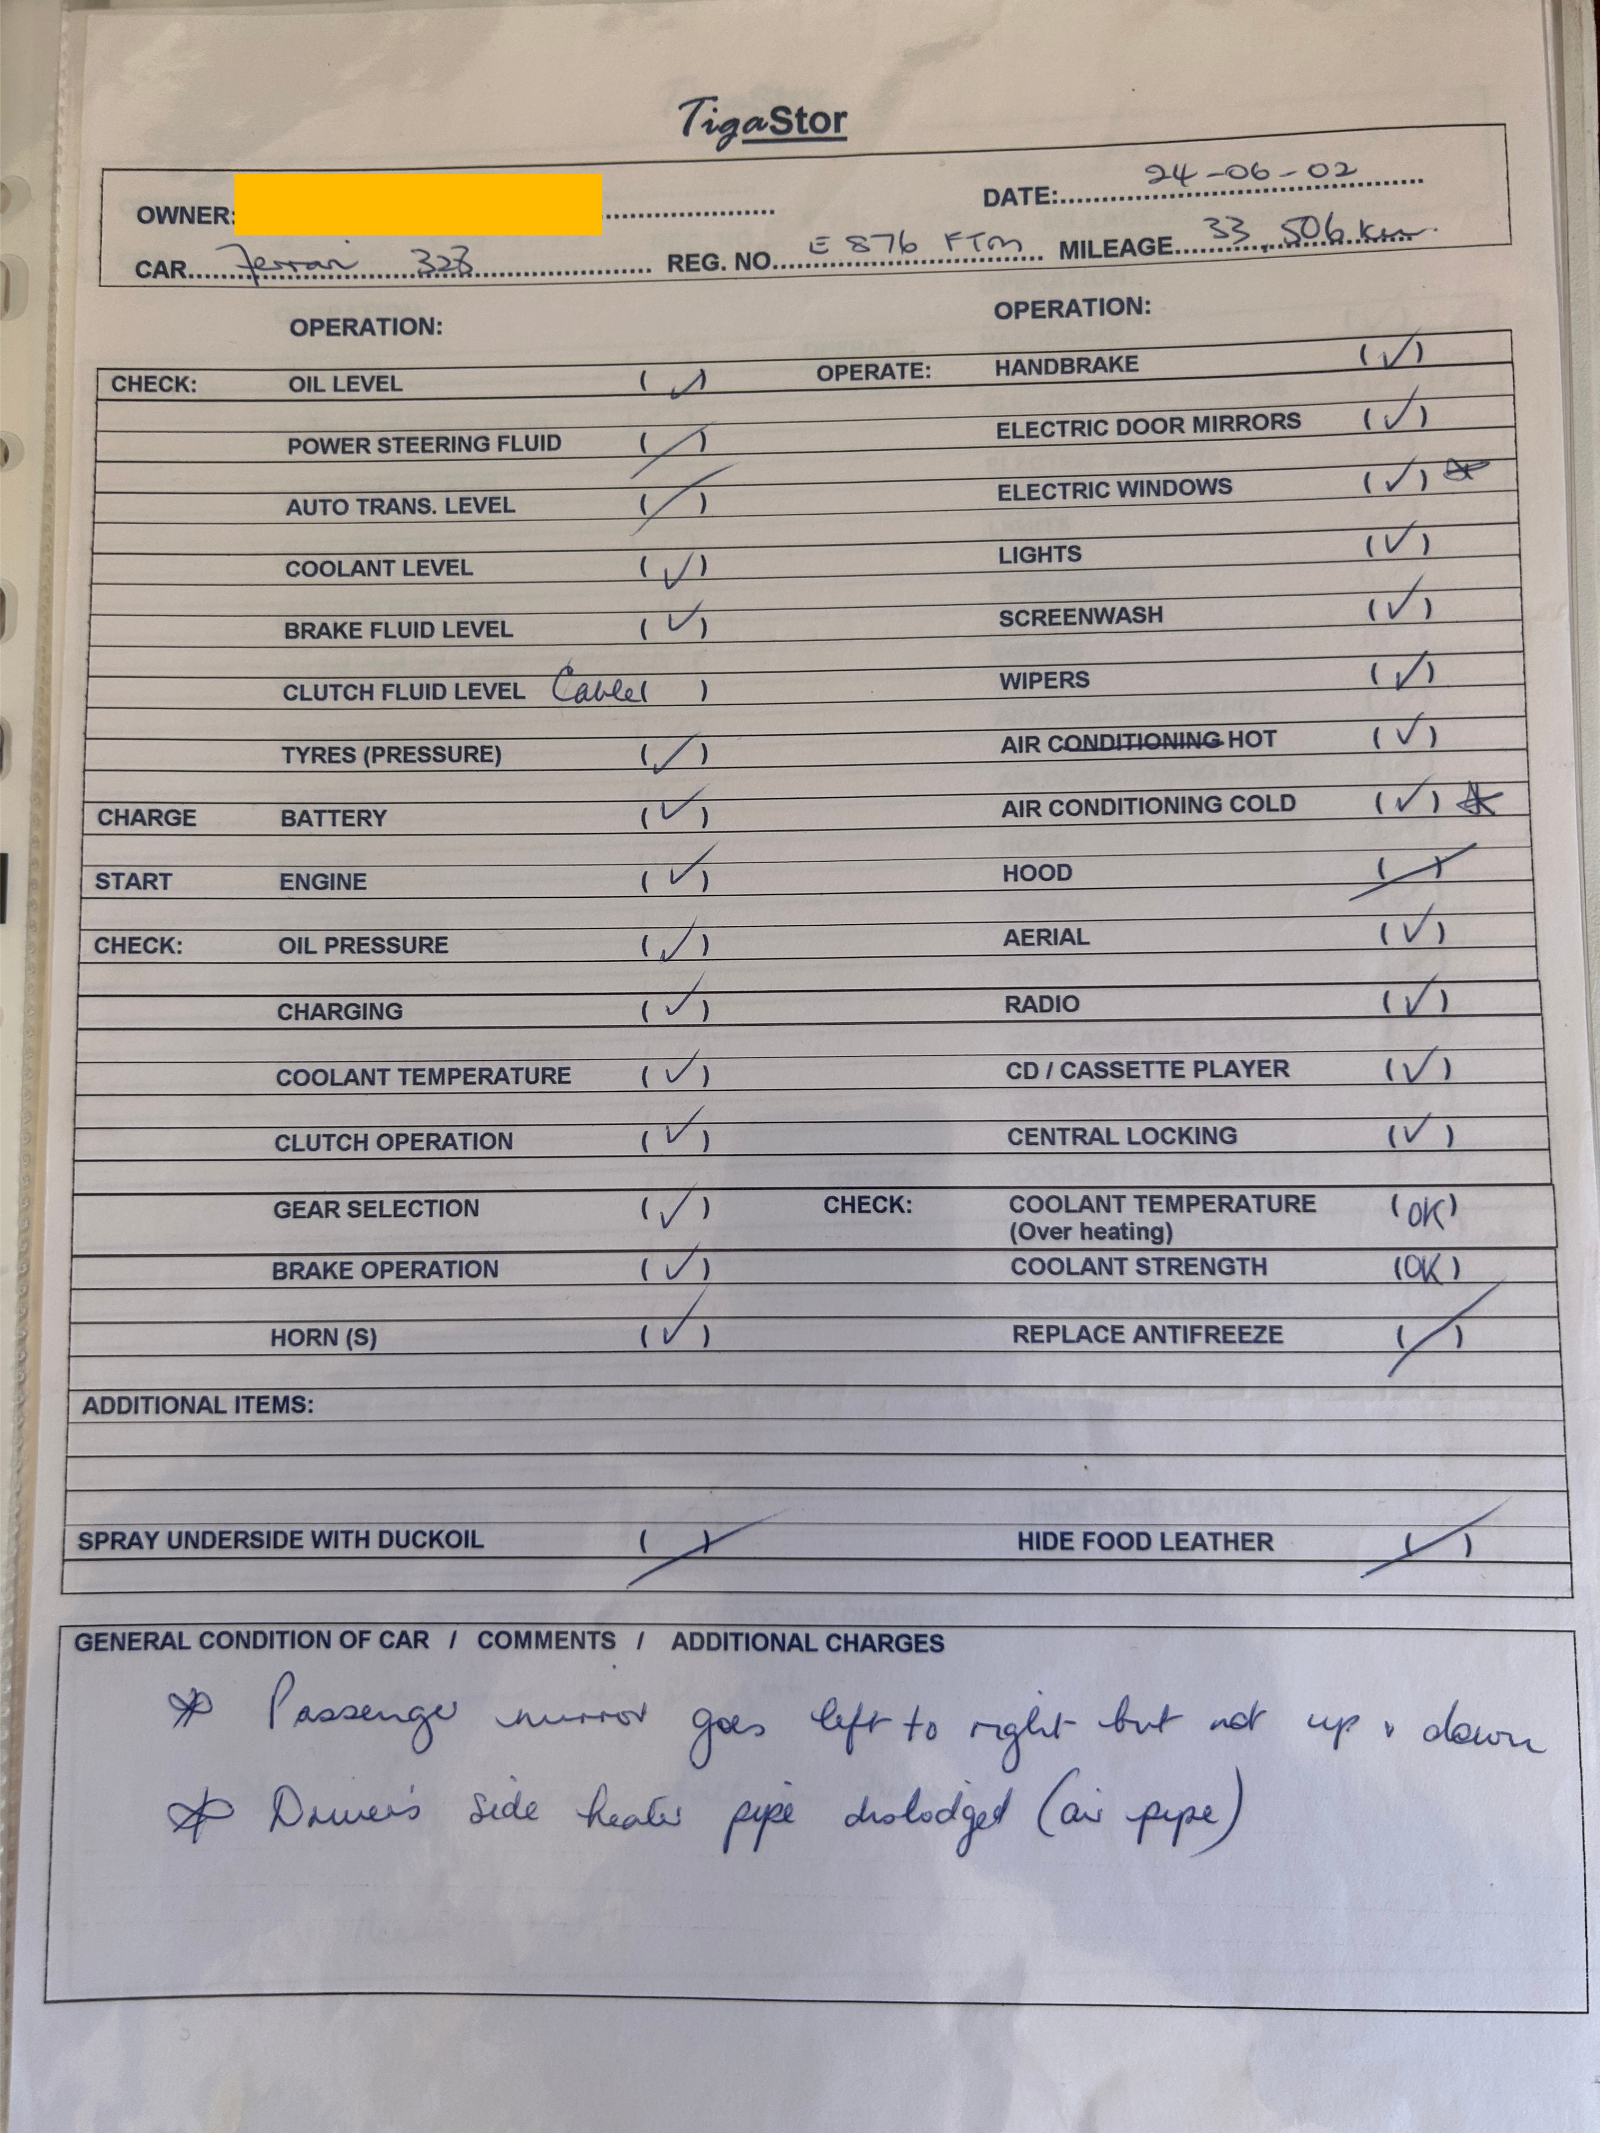 TigaStor
OWNER: DATE: 24-06-02
CAR Ferrari 328 REG. NO. E 876 FTM MILEAGE 33,506 km.
OPERATION: OPERATION:
CHECK: OIL LEVEL (✓) OPERATE: HANDBRAKE (✓)
POWER STEERING FLUID (/) ELECTRIC DOOR MIRRORS (✓)
AUTO TRANS. LEVEL (/) ELECTRIC WINDOWS (✓) *
COOLANT LEVEL (✓) LIGHTS (✓)
BRAKE FLUID LEVEL (✓) SCREENWASH (✓)
CLUTCH FLUID LEVEL Cable ( ) WIPERS (✓)
TYRES (PRESSURE) (✓) AIR CONDITIONING HOT (✓)
CHARGE BATTERY (✓) AIR CONDITIONING COLD (✓) *
START ENGINE (✓) HOOD (/)
CHECK: OIL PRESSURE (✓) AERIAL (✓)
CHARGING (✓) RADIO (✓)
COOLANT TEMPERATURE (✓) CD / CASSETTE PLAYER (✓)
CLUTCH OPERATION (✓) CENTRAL LOCKING (✓)
GEAR SELECTION (✓) CHECK: COOLANT TEMPERATURE (OK)
(Over heating)
BRAKE OPERATION (✓) COOLANT STRENGTH (OK)
HORN (S) (✓) REPLACE ANTIFREEZE (/)
ADDITIONAL ITEMS:
SPRAY UNDERSIDE WITH DUCKOIL (/) HIDE FOOD LEATHER (/)
GENERAL CONDITION OF CAR / COMMENTS / ADDITIONAL CHARGES
* Passenger mirror goes left to right but not up & down
* Driver's side heater pipe dislodged (air pipe)